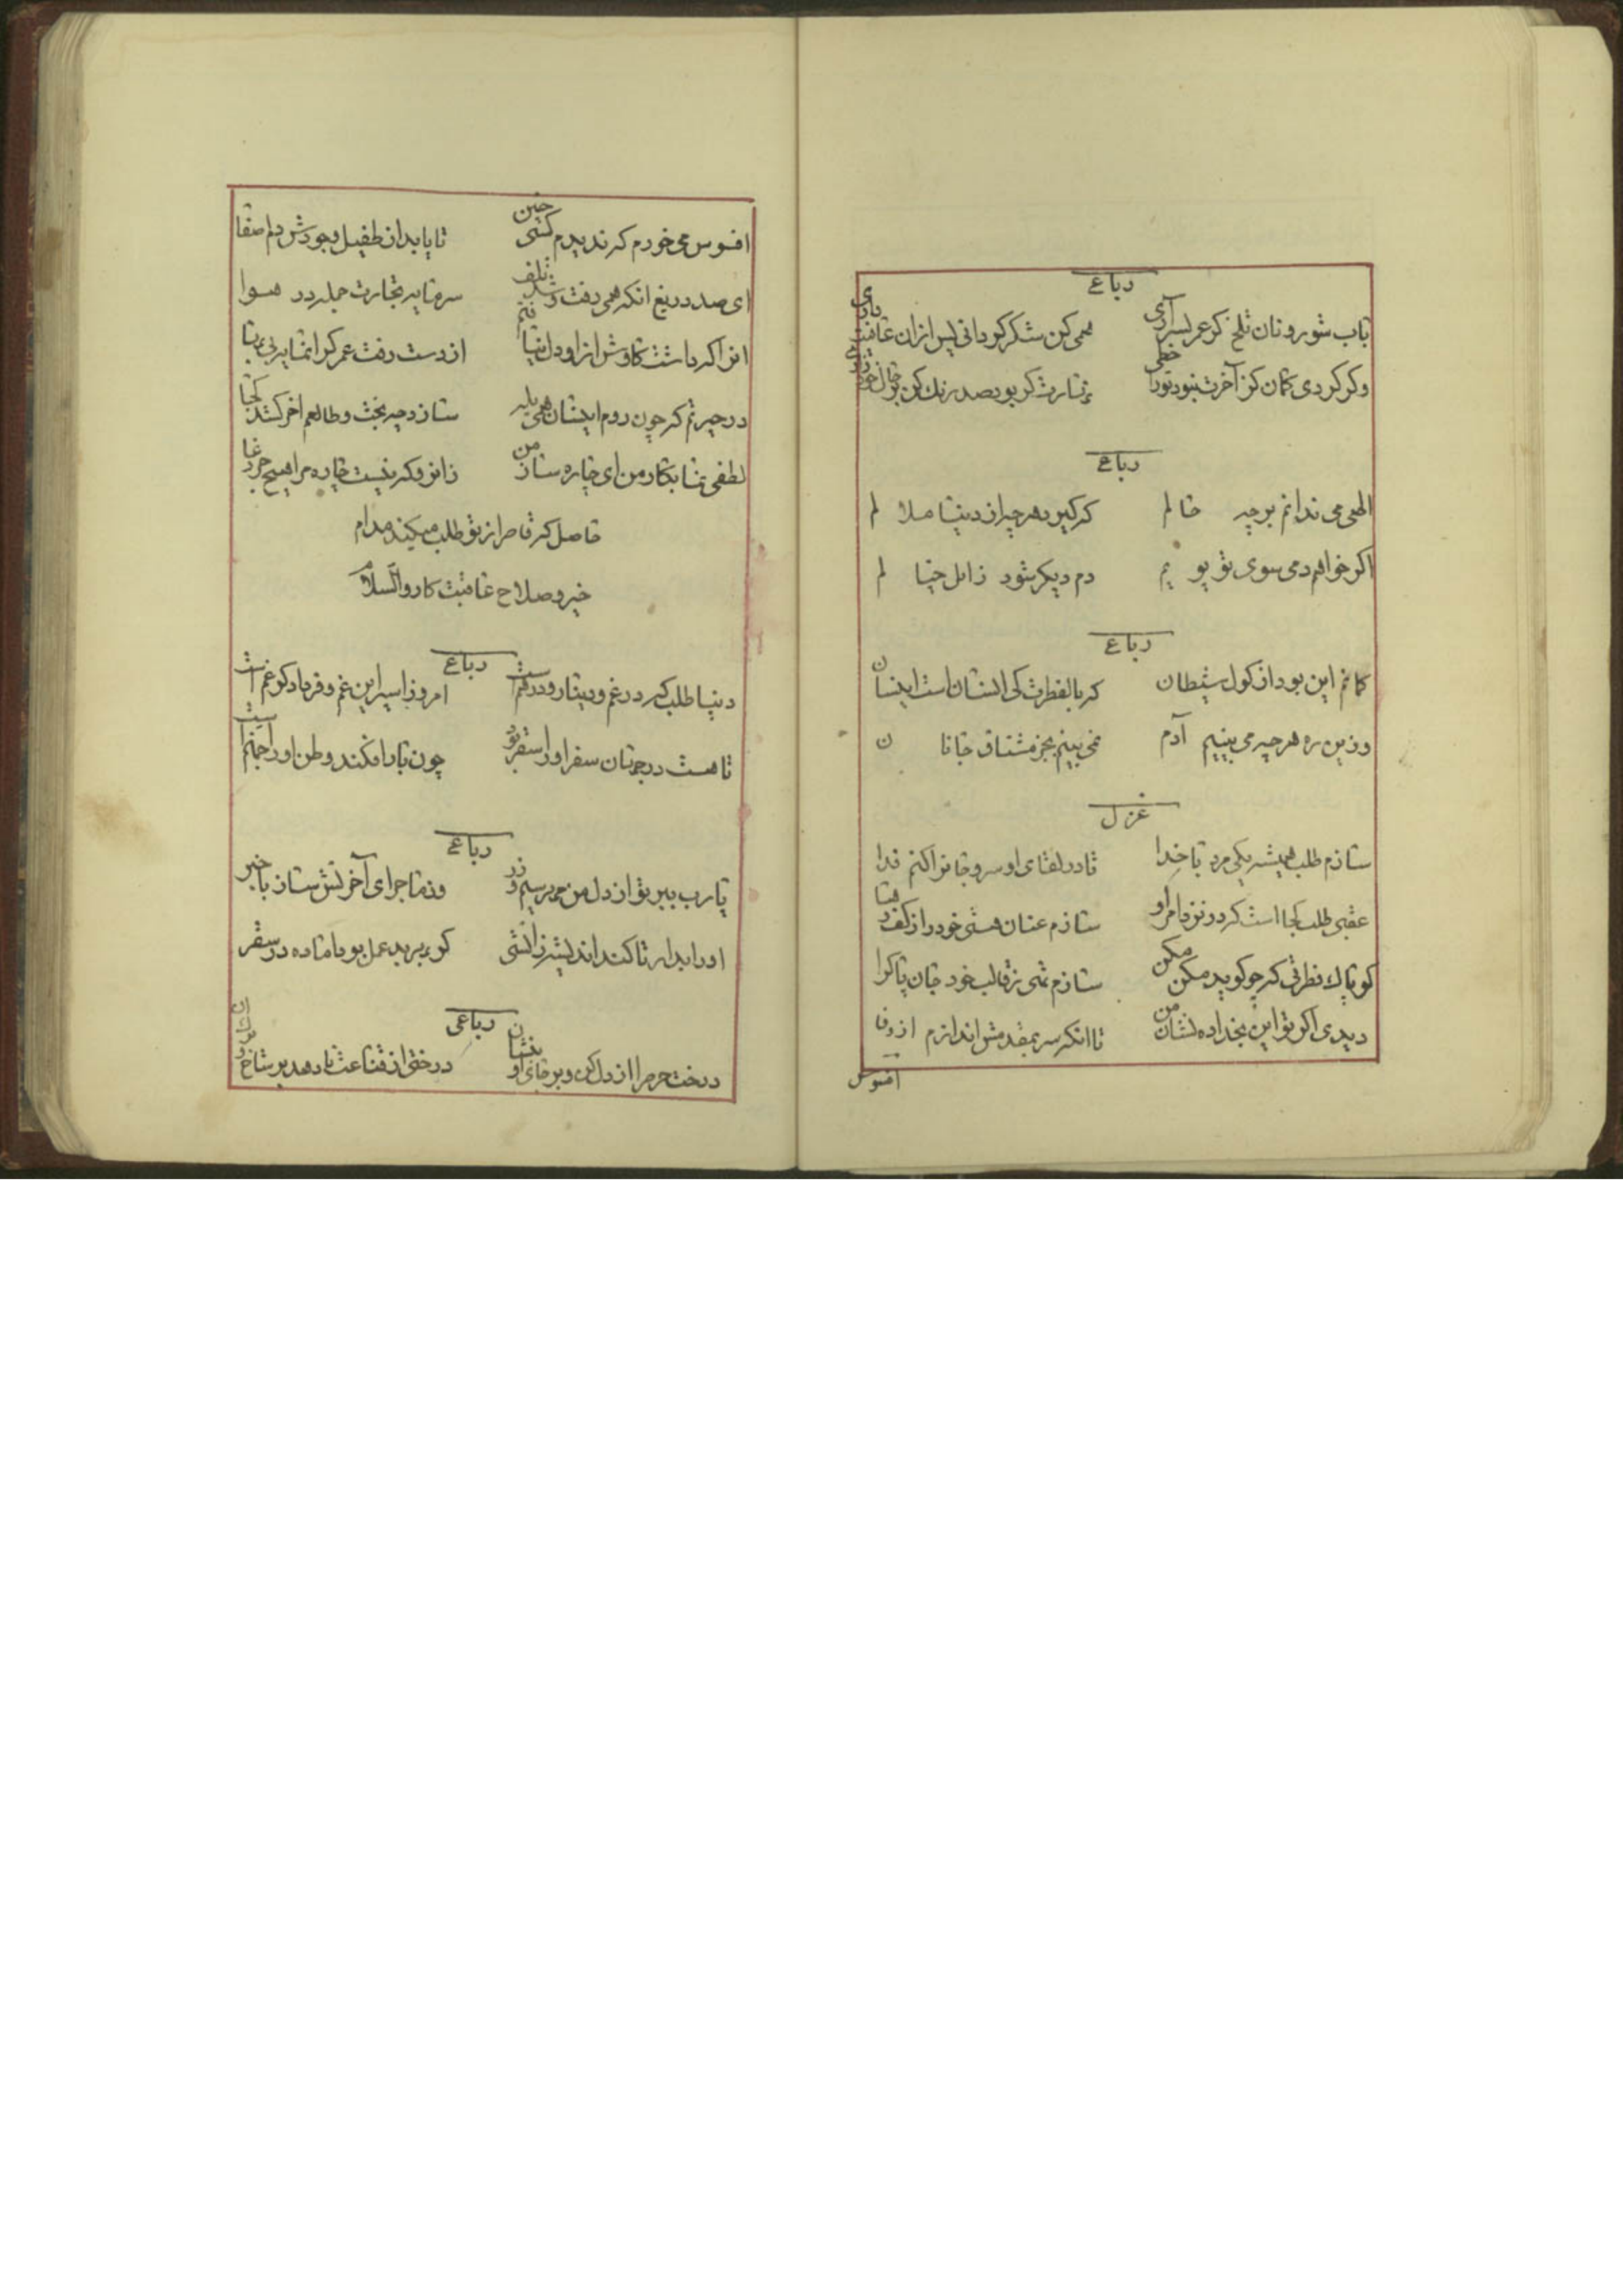 رباعی
باب شور و نان تلخ کر عمر بسر آری همی کن شکر کو دانی پس ازان عافیت داری
وکر کردی کمان کز آخرت نبود تورا حظی
رباعی
الهی می ندانم بر چه حالم که کیرد هر چه از دنیا ملالم
اکر خواهم دمی سوی تو پویم دم دیکر شود زائل خیالم
رباعی
کمانم این بود از کول شیطان که بالفطرت کی انسان است اینسان
وزین ره هر چه می بینیم آدم نمی بینم بجز مشتاق جانان
غزل
سازم طلب همیشه یکی مرد با خدا تا در لقای او سر و جانرا کنم فدا
عقبی طلب کجا است که در نزد امر او سازم عنان هستی خود را ز کف رها
کو پاک فطرتی که چو کوید مکن مکن سازم تهی ز قالب خود جان پاک را
دیدی اکر تو این بخدا ده نشان من تا انکه سر بمقدمش اندازم از وفا
افسوس
افسوس می خورم که ندیدم کسی چنین تا یابد از طفیل وجودش دلم صفا
ای صد دریغ انکه همی رفت و شد تلف سرمایه تجارت جمله در هوا
از دست رفت عمر کرانمایه بی بها
در حیرتم که چون روم ایشان همی بایه سازد چه بخت و طالعم اخر کشد کجا
لطفی نما بکار من ای چاره ساز من زانرو که نیست چاره مرا هیچ جز دعا
حاصل که قاصر از تو طلب میکند مدام
خیر و صلاح عاقبت کار والسلام
رباعی
دنیا طلب که در غم دینار و درهم است امروز اسیر این غم و فردا دکر غم است
تا هست در جهان سفر او را سقر بود چون بار افکند وطن او را جهنم است
رباعی
یارب ببر تو از دل من حب سیم و زر وز ماجرای آخرتش ساز با خبر
کوء برید عمل بود اماده در سقر
رباعی
درخت حرص را از دل کن و بر جای او بنشان درختی از قناعت تا دهد بر شاخ